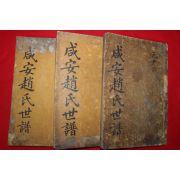 咸安趙氏世譜
咸安趙氏世譜
咸安趙氏世譜